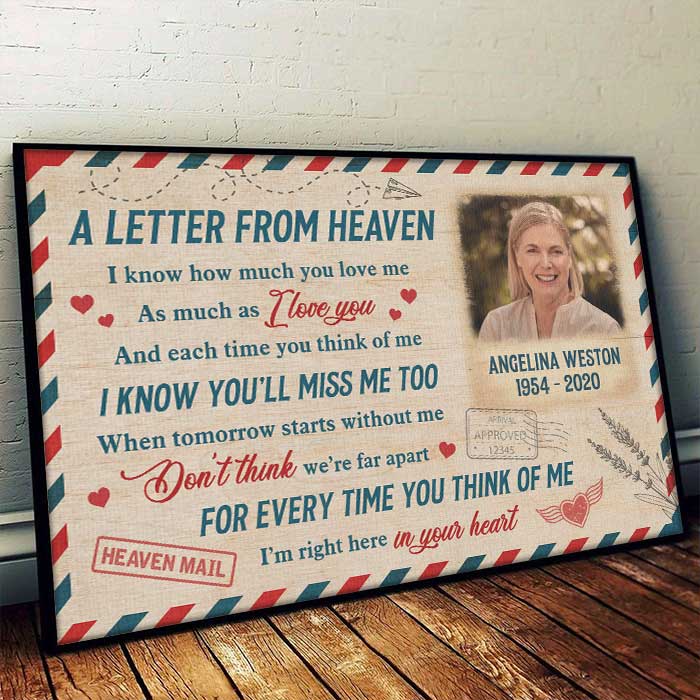 A LETTER FROM HEAVEN
I know how much you love me
As much as I love you
And each time you think of me
I KNOW YOU'LL MISS ME TOO
When tomorrow starts without me
Don't think we're far apart
FOR EVERY TIME YOU THINK OF ME
I'm right here in your heart
HEAVEN MAIL
ANGELINA WESTON
1954 - 2020
ARRIVAL
APPROVED
12345